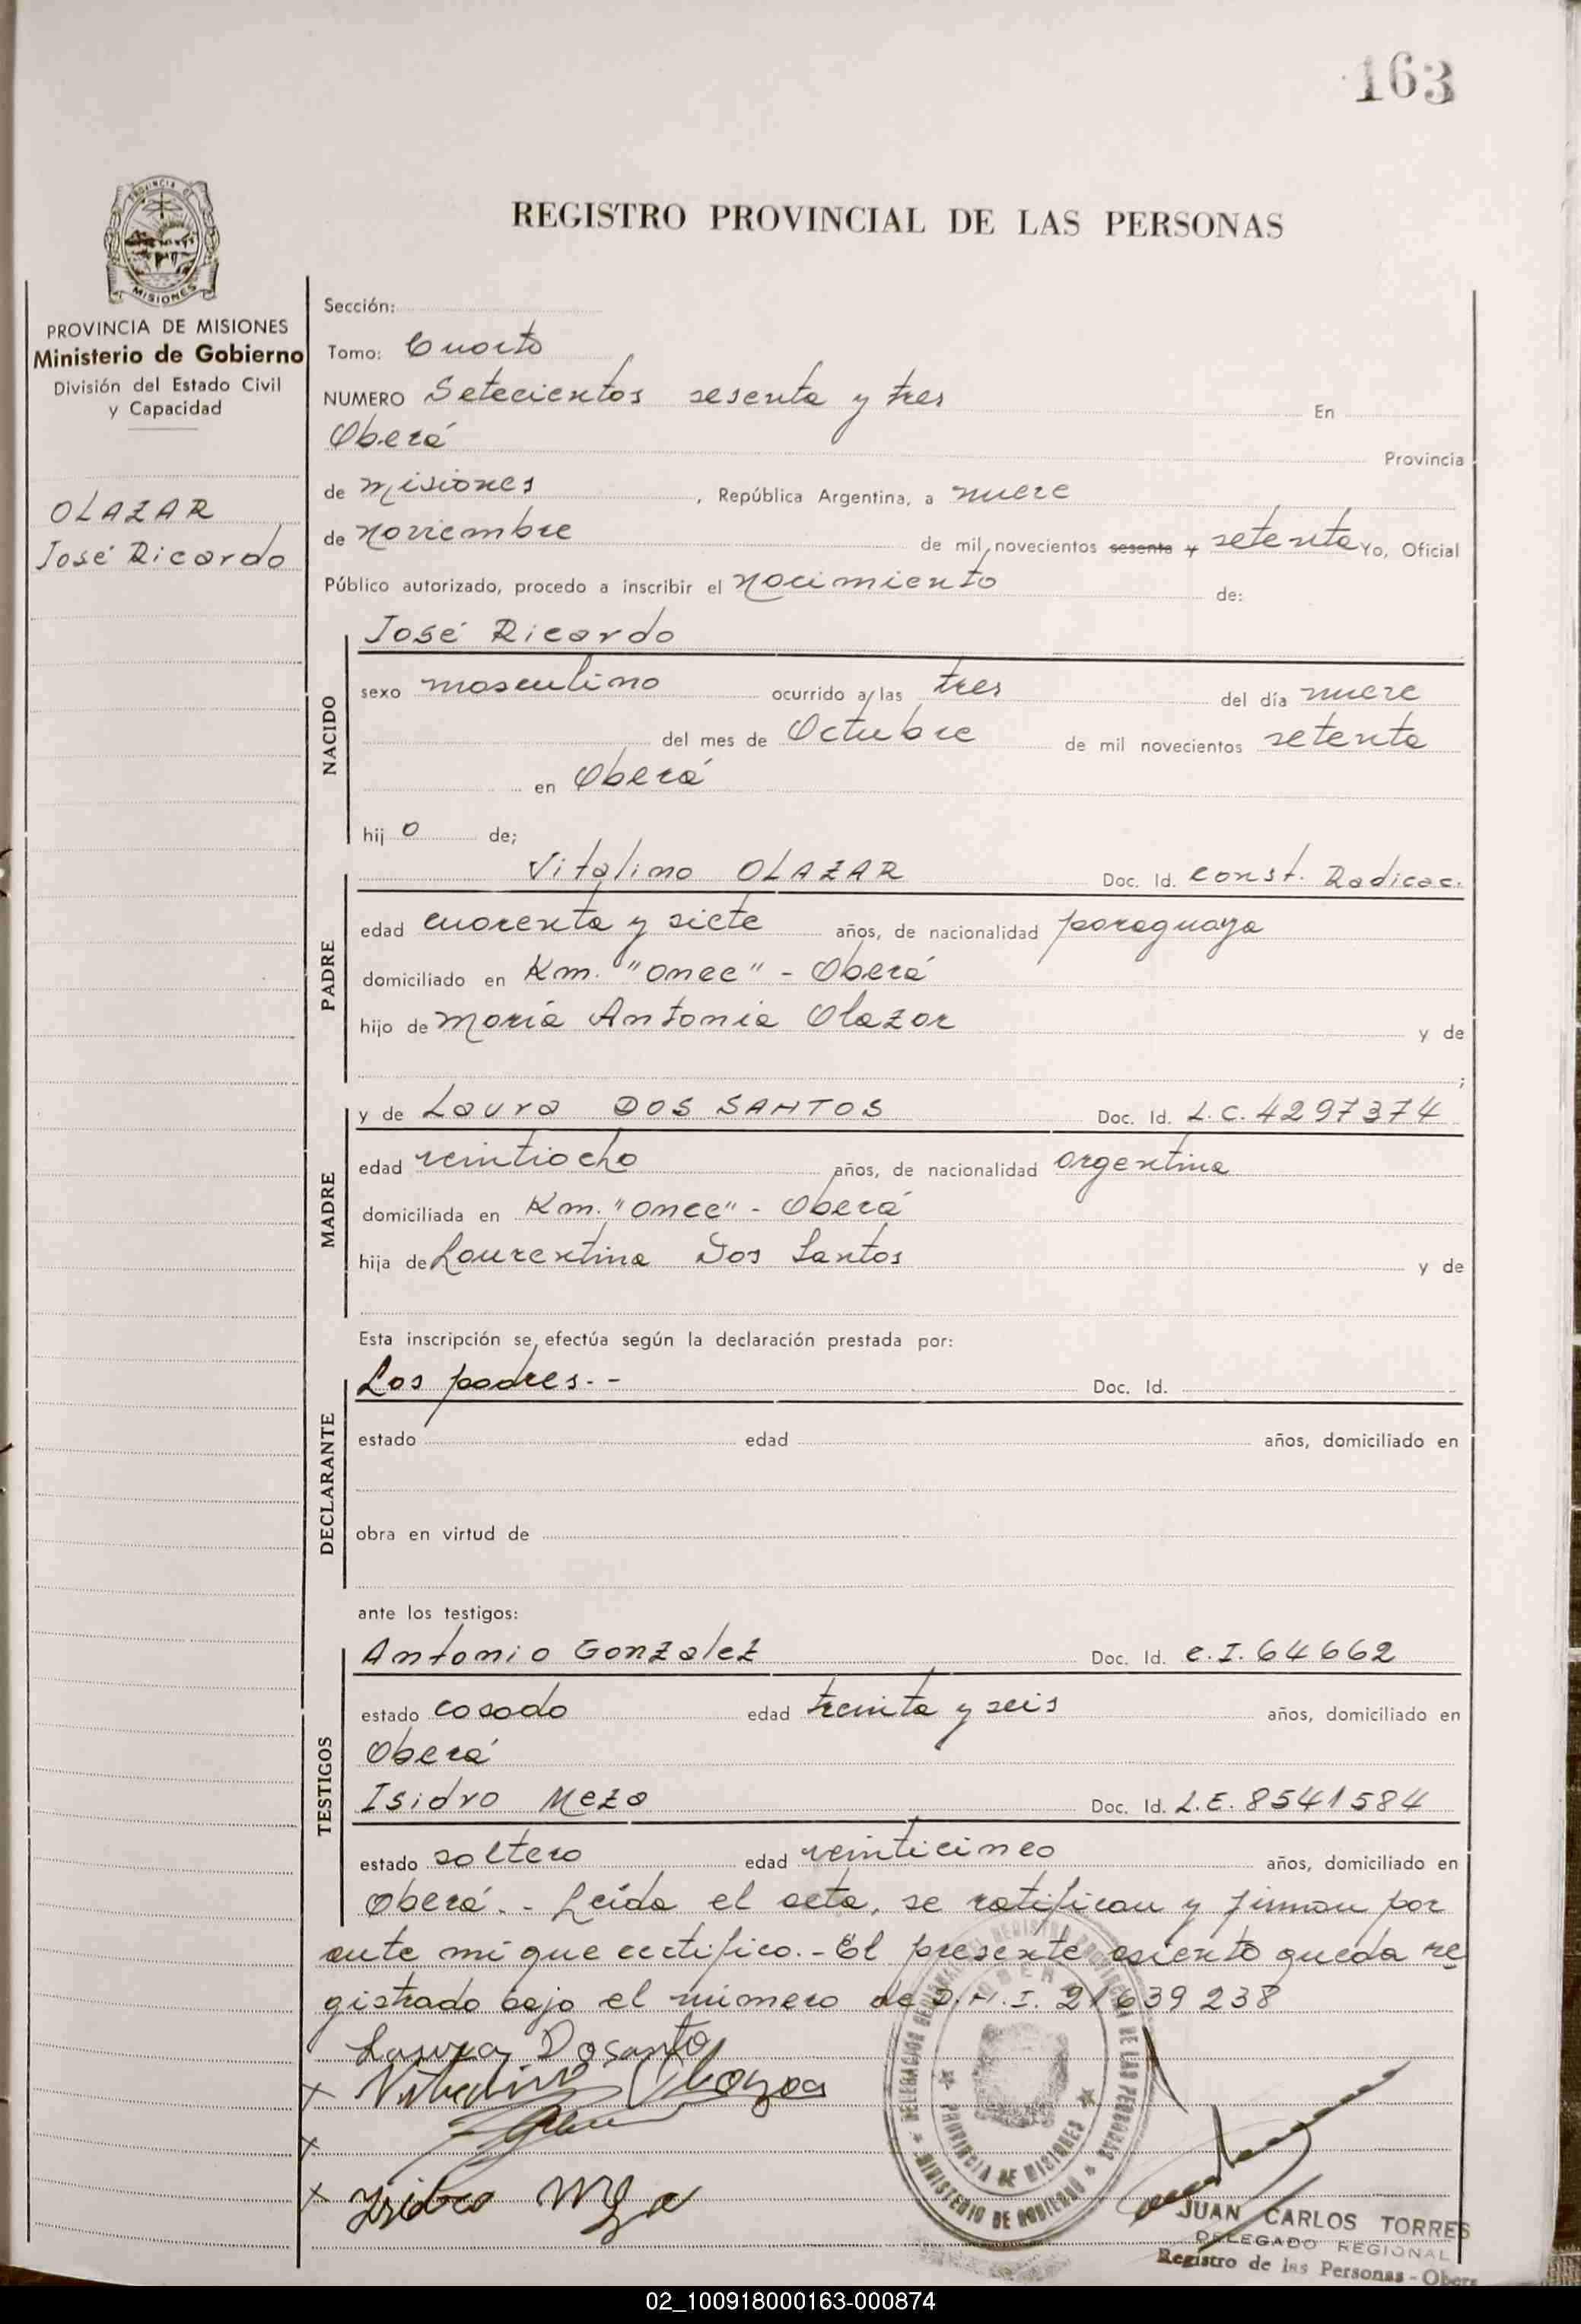 163
PROVINCIA DE MISIONES
REGISTRO PROVINCIAL DE LAS PERSONAS
PROVINCIA DE MISIONES
Ministerio de Gobierno
División del Estado Civil
y Capacidad
OLAZAR
José Ricardo
Sección:
Tomo: Cuarto
NUMERO Setecientos sesenta y tres En
Oberá Provincia
de Misiones , República Argentina, a nueve
de noviembre de mil novecientos sesenta y setenta Yo, Oficial
Público autorizado, procedo a inscribir el nacimiento de:
NACIDO
José Ricardo
sexo masculino ocurrido a las tres del día nueve
del mes de Octubre de mil novecientos setenta
en Oberá
hij o de;
PADRE
Vitalino OLAZAR Doc. Id. const. Radicac.
edad cuarenta y siete años, de nacionalidad paraguaya
domiciliado en Km. "once" - Oberá
hijo de María Antonia Olazar y de
;
MADRE
y de Laura DOS SANTOS Doc. Id. L.C. 4297374
edad veintiocho años, de nacionalidad argentina
domiciliada en Km. "once" - Oberá
hija de Laurentina Dos Santos y de
Esta inscripción se efectúa según la declaración prestada por:
DECLARANTE
Los padres.- - Doc. Id.
estado edad años, domiciliado en
obra en virtud de
ante los testigos:
TESTIGOS
Antonio Gonzalez Doc. Id. C.I. 64662
estado casado edad treinta y seis años, domiciliado en
Oberá
Isidro Meza Doc. Id. L.E. 8541584
estado soltero edad veinticinco años, domiciliado en
Oberá.- Leída el acta, se ratifican y firman por
ante mí que certifico.- El presente asiento queda re
gistrado bajo el número de D.N.I. 21639238
Laura Dosanto
x Vitalino
x
x Isidro Meza
PROVINCIA DE MISIONES
MINISTERIO DE GOBIERNO
JUAN CARLOS TORRES
DELEGADO REGIONAL
Registro de las Personas - Oberá
02_100918000163-000874